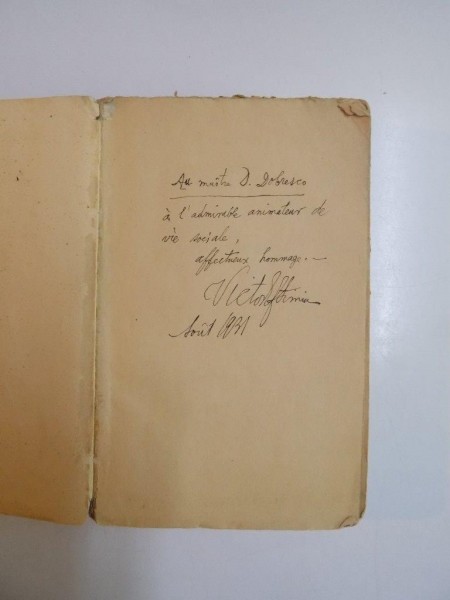 Au maître D. Dobresco
à l'admirable animateur de
vie sociale,
affectueux hommage. —
Victor Eftimiu
Août 1931